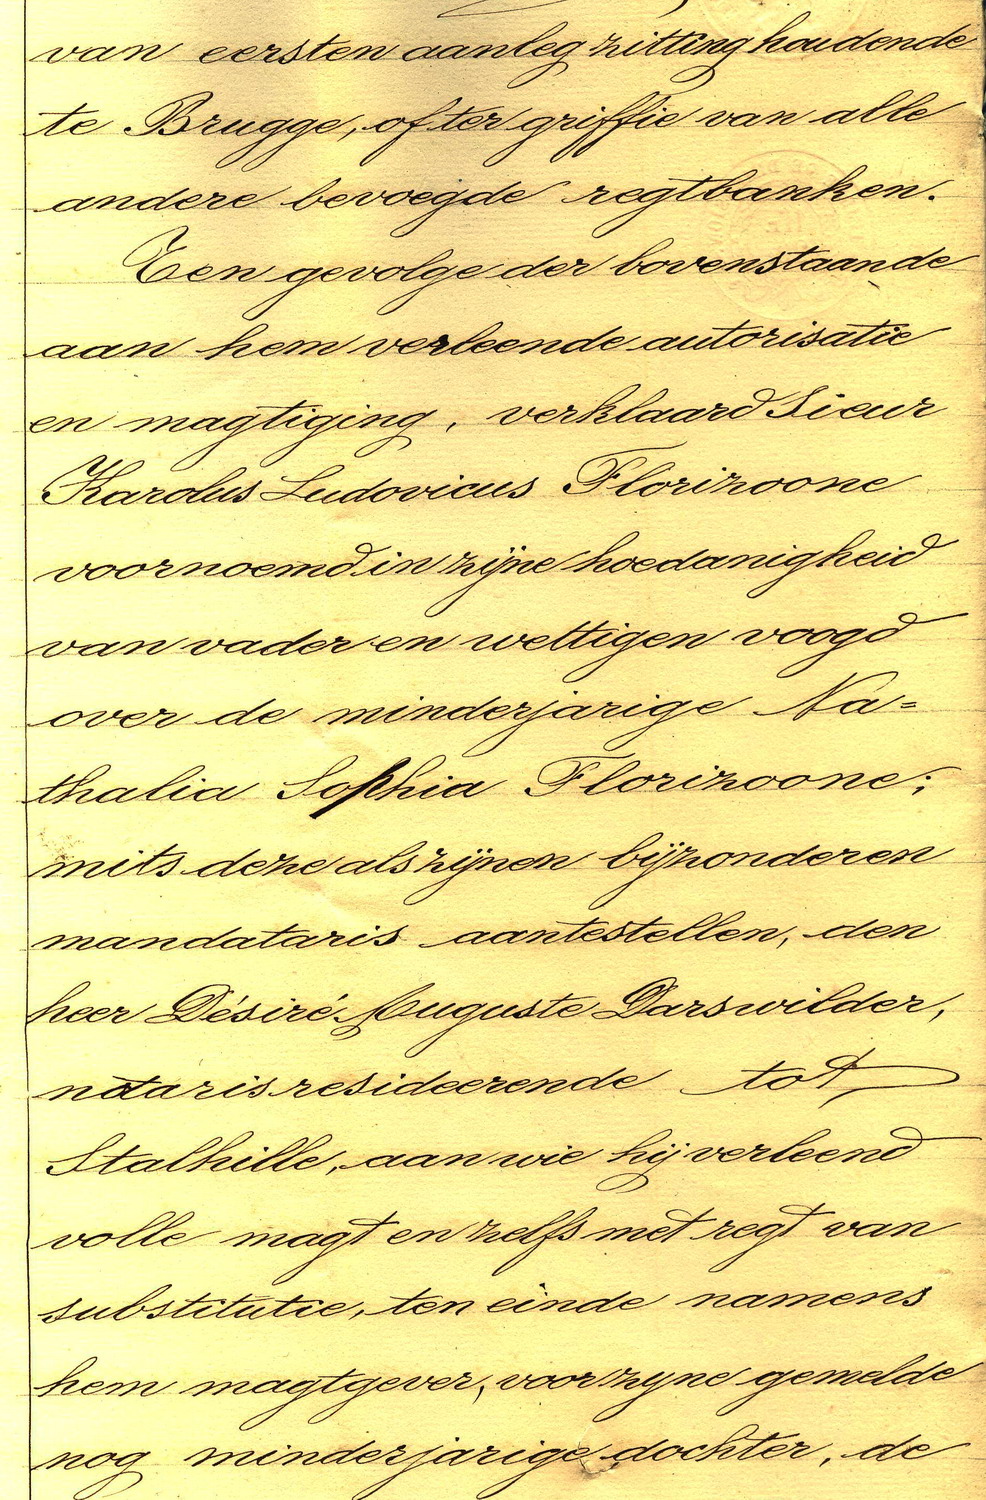 van eersten aanleg zitting houdende
te Brugge, of ter griffie van alle
andere bevoegde regtbanken.
Ten gevolge der bovenstaande
aan hem verleende autorisatie
en magtiging, verklaard Sieur
Karolus Ludovicus Florizoone
voornoemd in zijne hoedanigheid
van vader en wettigen voogd
over de minderjarige Na=
thalia Sophia Florizoone;
mits deze als zijnen bijzonderen
mandataris aantestellen, den
heer Désiré Auguste Darswilder,
notaris resideerende tot
Stalhille, aan wie hij verleend
volle magt en zelfs met regt van
substitutie, ten einde namens
hem magtgever, voor zyne gemelde
nog minderjarige dochter, de